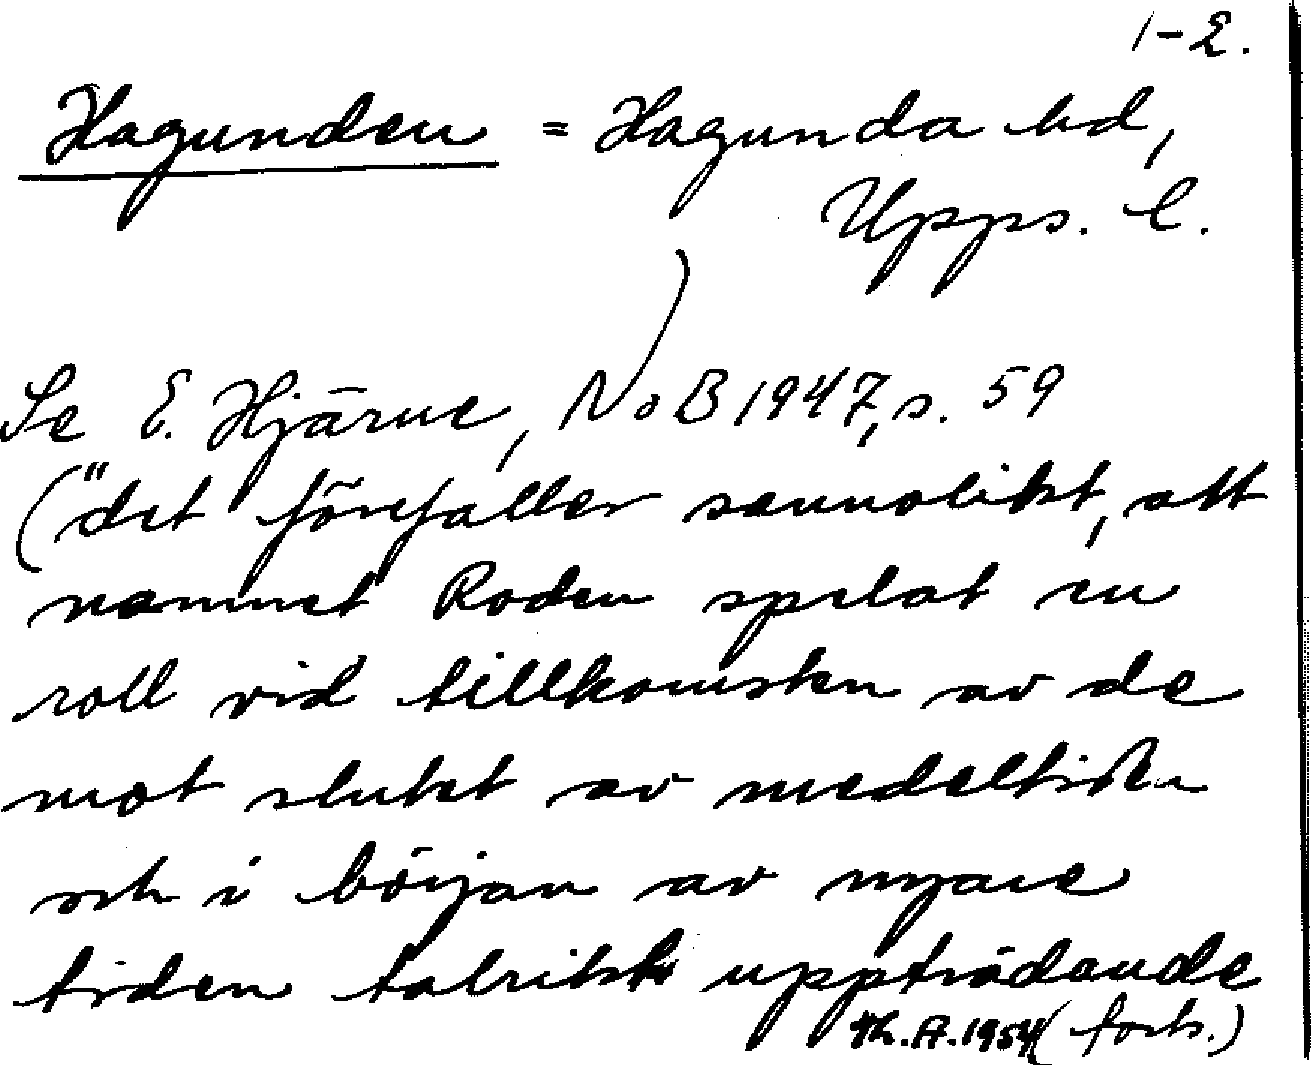 1-2.
Hagunden = Hagunda hd,
Upps. l.
Se E. Hjärne, NoB 1947, s. 59
("det förefaller sannolikt, att
namnet Roden spelat en
roll vid tillkomsten av de
mot slutet av medeltiden
och i början av nyare
tiden talrikt uppträdande
Th.A.1954 (forts.)